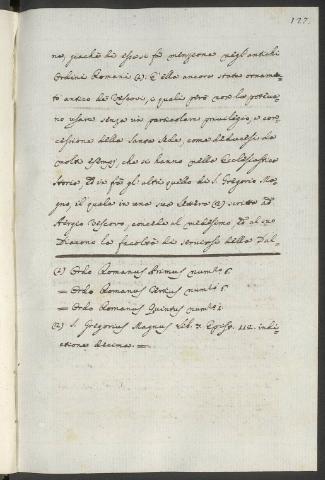 127.
ne, giachè di esse si fà menzione negli antichi
Ordini Romani (1). E' ella ancora stata ornamen-
to antico de Vescovi, i quali però non la poteva-
no usare senza un particolare privilegio, e con-
cessione della Santa Sede, come deducesi da
molti esempj, che si hanno nella Ecclesiastica
Storia, ed in frà gli altri quello di S. Gregorio Ma-
gno, il quale in una sua lettera (2) scritta ad
Aregio Vescovo, concede al medesimo ed al suo
Diacono la facoltà di servirsi della Dal
(1) Ordo Romanus Primus num: 6
= Ordo Romanus Tertius num: 6
= Ordo Romanus Quintus num: 1
(2) S. Gregorius Magnus Lib. 7 Epist. 112. indi-
ctione decima. =